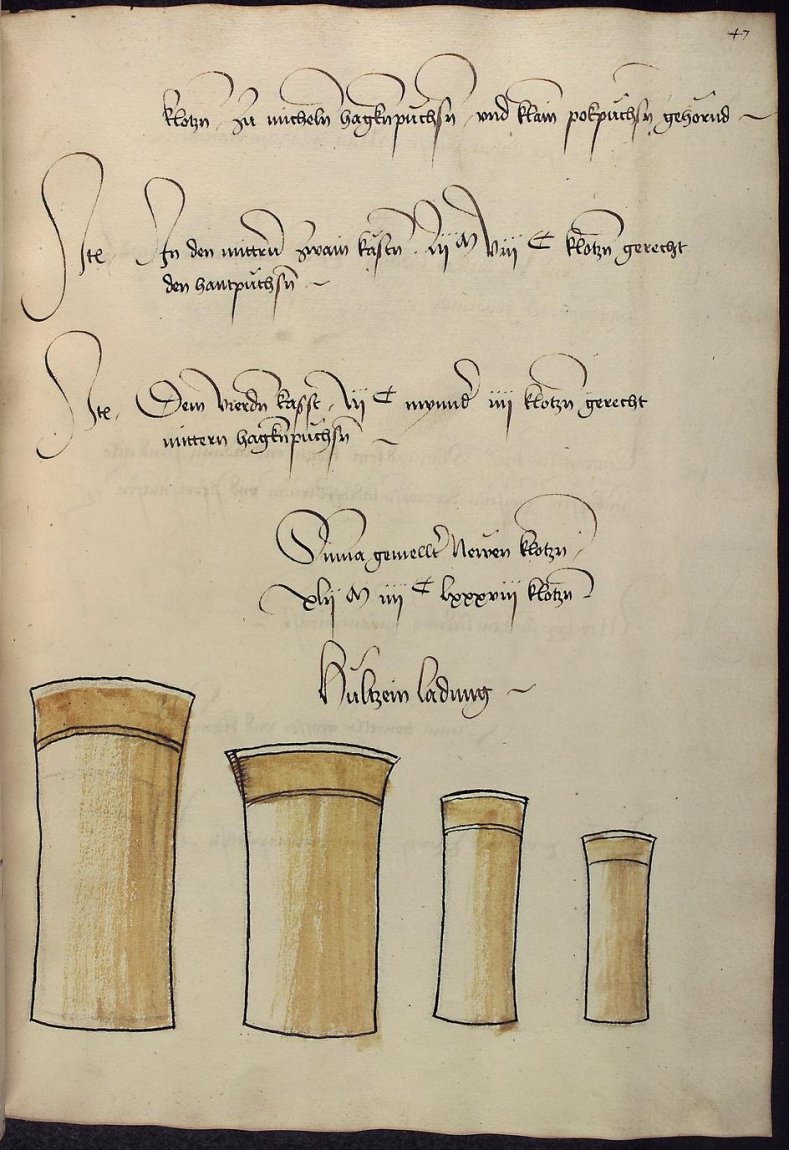 47
klotzn zu micheln hagknpuchsn vnd klain pokpuchsn gehörnd
Itē In den mittern zwain kästn lii M viii C klotzn gerecht
den hantpüchsn
Itē Dem vierdn kasst vii C mynnd iiii klotzn gerecht
mittern hagknpüchsn
Suma gemellt Newen klotzn
xlii M iiii C lxxxviii klotzn
Hültzein ladung